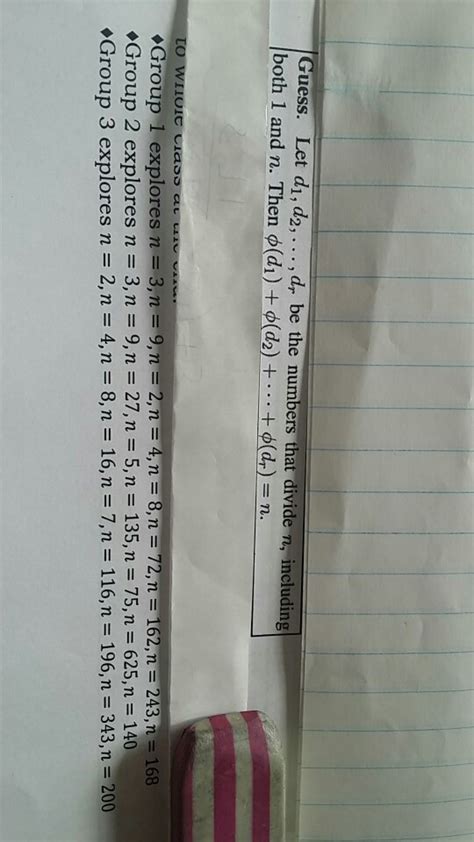 Guess. Let d₁, d₂, . . . , dᵣ be the numbers that divide n, including
both 1 and n. Then ϕ(d₁) + ϕ(d₂) + · · · + ϕ(dᵣ) = n.
to whole class at the end.
♦Group 1 explores n = 3, n = 9, n = 2, n = 4, n = 8, n = 72, n = 162, n = 243, n = 168
♦Group 2 explores n = 3, n = 9, n = 27, n = 5, n = 135, n = 75, n = 625, n = 140
♦Group 3 explores n = 2, n = 4, n = 8, n = 16, n = 7, n = 116, n = 196, n = 343, n = 200